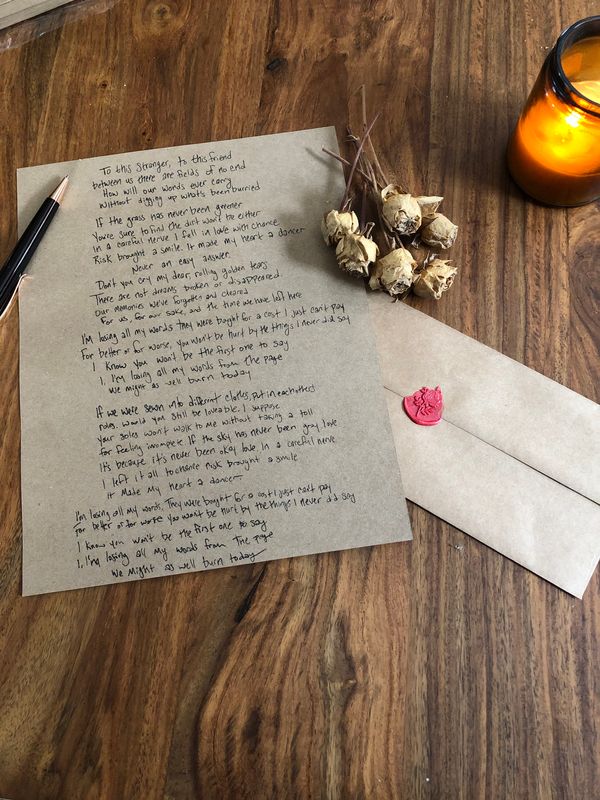 To this Stranger, to this friend
between us there are fields of no end
How will our words ever carry
Without digging up whats been burried
If the grass has never been greener
You're sure to find the dirt won't be either
in a careful nerve I fell in love with chance
Risk brought a smile. It made my heart a dancer
Never an easy answer
Don't you cry my dear, rolling golden tears
There are not dreams broken or disappeared.
Our memories we've forgotten and cleared
For us, for our sake, and the time we have left here
I'm losing all my words They were bought for a cost I just can't pay
For better or for worse, you won't be hurt by the things I never did say
I know you won't be the first one to say
I, I'm losing all my words from the page
We might as well burn today
If we were sewn into different clothes, put in each others
roles. Would you still be loveable. I suppose
your soles won't walk to me without taking a toll
for feeling incompete. If the sky has never been gray love
It's because it's never been okay love in a careful nerve
I left it all to chance risk brought a smile
it Made My heart a dancer
I'm losing all my words, They were bought for a cost I just can't pay
for better or for worse you won't be hurt by the things I never did say
I know you won't be the first one to say
I, I'm losing all my words from The page
We Might as well burn today